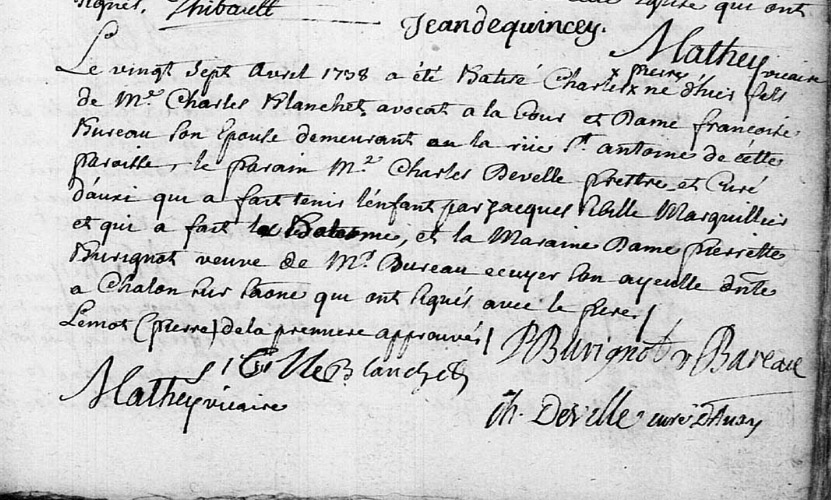 signés. Thibault église qui ont
Jeandequincey.
Mathey vicaire
Le vingt sept Avril 1738 a été Batisé Charles x pierre x né d'hier fils
de Mre Charles Blanchet avocat a la Cour et Dame francoise
Bureau son Epouse demeurant en la rüe St antoine de cette
paroisse, le parain Mre Charles Develle prestre et Curé
d'auxi qui a fait tenir l'enfant par Jacques Marguillier
et qui a fait la et la Maraine Dame pierrette
Buvignot veuve de Mr Bureau ecuyer son ayeulle dnte
a Chalon sur saone qui ont signés avec le pere /
Lemot (pierre) de la premiere approuvés /
P Buvignot v Bureau
Blanchet
Mathey vicaire
Ch. Develle curé d'Auxy